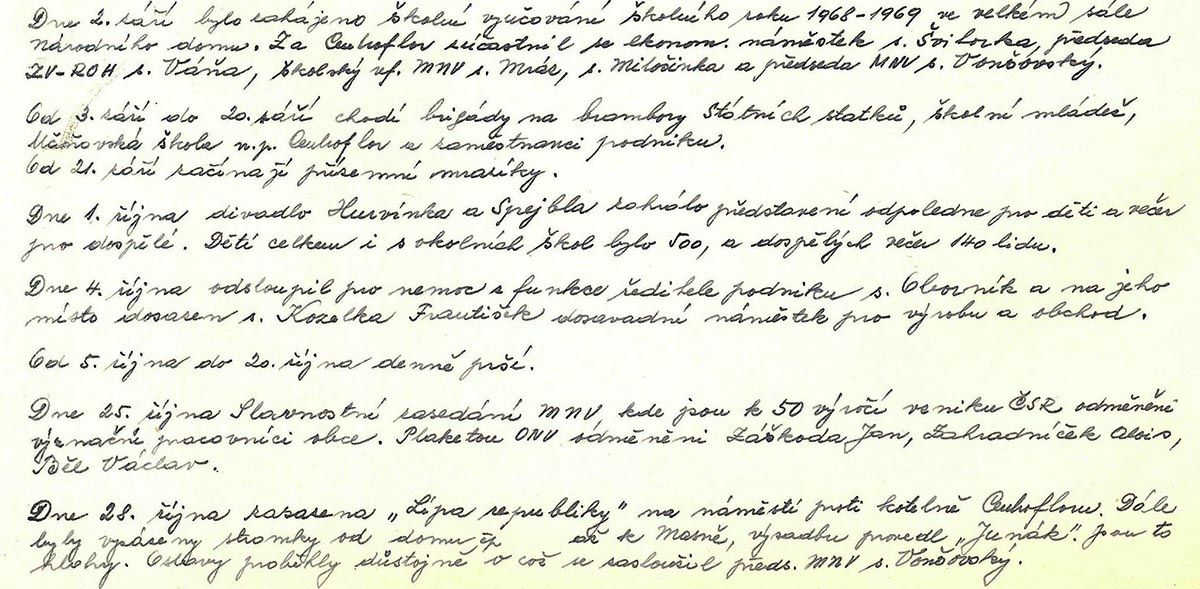 Dne 2. září bylo zahájeno školní vyučování školního roku 1968-1969 ve velkém sále
Národního domu. Za Centroflor súčastnil se ekonom. náměstek s. Švihorka, předseda
ZV-ROH s. Váňa, školský ref. MNV s. Mráz, s. Milošinka a předseda MNV s. Vonšovský.
Od 3. září do 20. září chodí brigády na brambory Státních statků, školní mládež,
Učňovská škola n.p. Centroflor a zaměstnanci podniku.
Od 21. září začínají přízemní mrazíky.
Dne 1. října divadlo Hurvínka a Spejbla zahrálo představení odpoledne pro děti a večer
pro dospělé. Dětí celkem i z okolních škol bylo 500, a dospělých večer 140 lidu.
Dne 4. října odstoupil pro nemoc z funkce ředitele podniku s. Oborník a na jeho
místo dosazen s. Kozelka František dosavadní náměstek pro výrobu a obchod.
Od 5. října do 20. října denně prší.
Dne 25. října Slavnostní zasedání MNV, kde jsou k 50 výročí vzniku ČSR odměněni
význační pracovníci obce. Plaketou ONV odměněni Záškoda Jan, Zahradníček Alois,
Běl Václav.
Dne 28. října zasazena „Lípa republiky" na náměstí proti kotelně Centrofloru. Dále
byly vysázeny stromky od domu čp až k Masně, výsadbu provedl „Junák". Jsou to
hlohy. Oslavy proběhly důstojně o což se zasloužil předs. MNV s. Vonšovský.